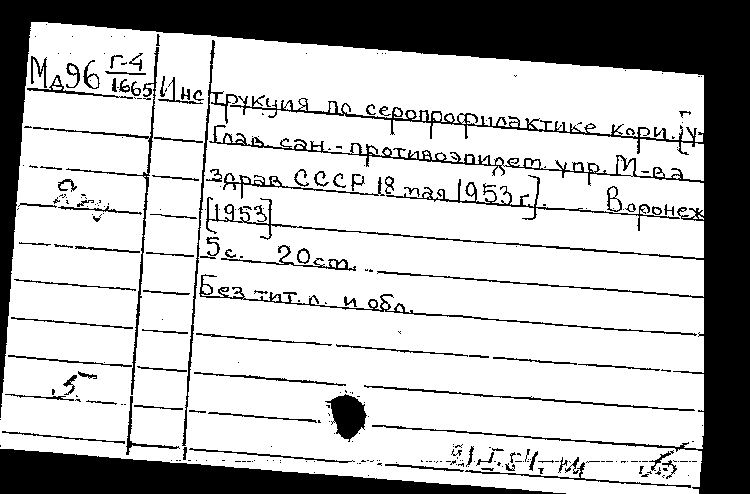 Мд96 Г-4/1665 Инструкция по серопрофилактике кори. [Ут
Глав. сан.-противоэпидем. упр. М-ва
здрав СССР 18 мая 1953 г.]. Воронеж
[1953]
5 с. 20 см.
Без тит. л. и обл.
5